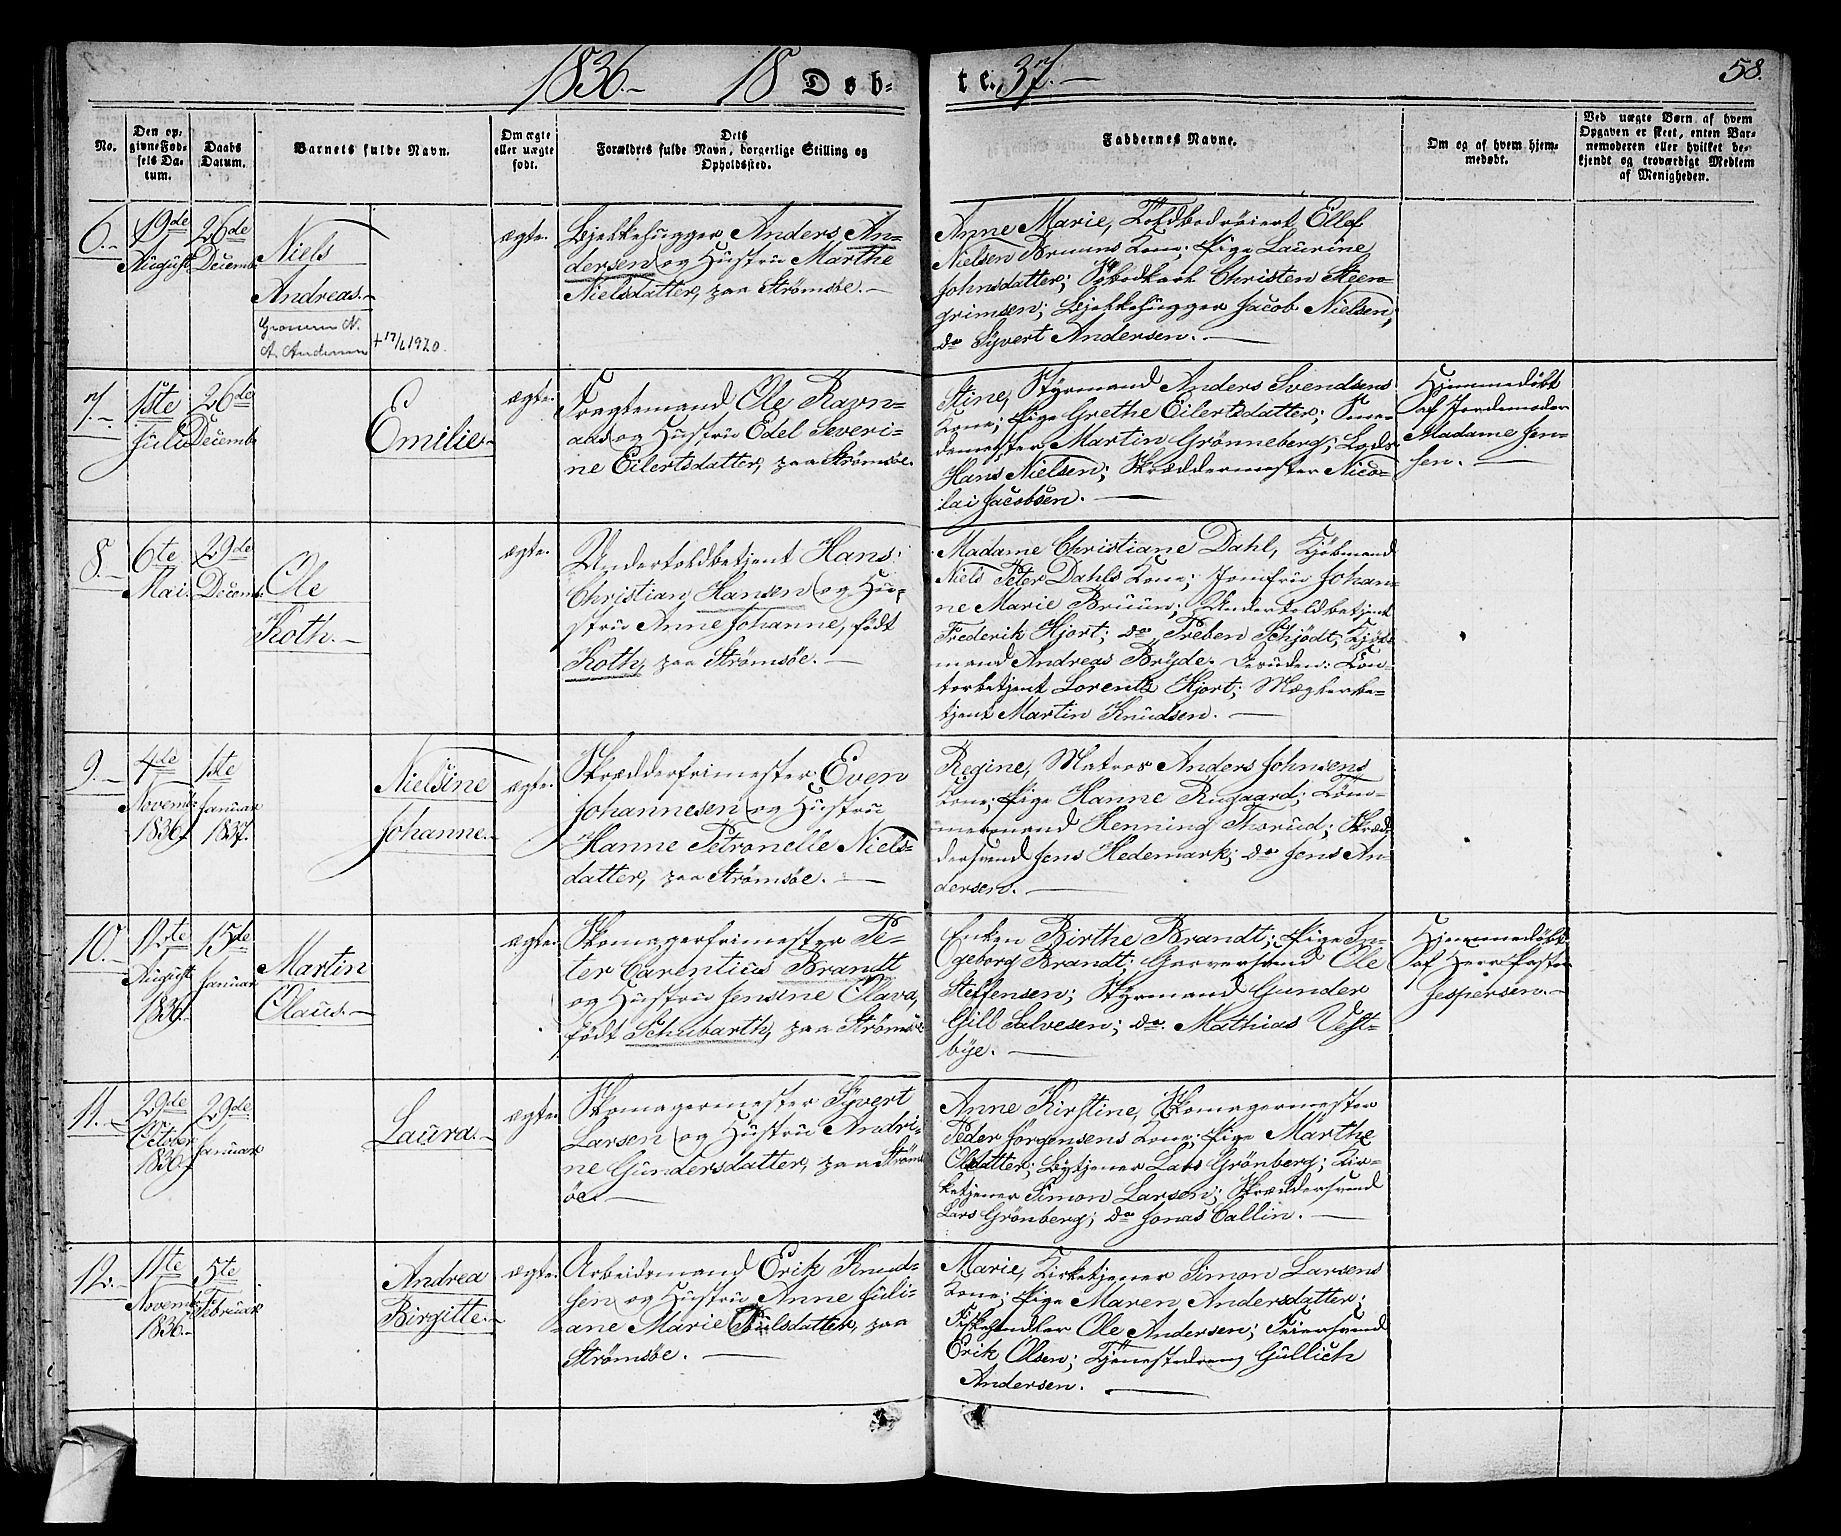 1836.- 18 Døb-
te. 37.-
58.
No.
Den op-
givne Fød-
sels Da-
tum.
Daabs
Datum.
Barnets fulde Navn.
Om ægte
eller uægte
født.
Dets
Forældres fulde Navn, borgerlige Stilling og
Opholdssted.
Faddernes Navne.
Om og af hvem hjem-
medøbt.
Ved uægte Børn af hvem
Opgaven er skeet, enten Bar-
nemoderen eller hvilket be-
kjendt og troværdigt Medlem
af Menigheden.
6.-
19de
August
26de
Decemb
Niels
Andreas.-
A. Andersen
+17/6 1920.
ægte.
Bjelkehugger Anders An-
dersen og Hustru Marthe
Nielsdatter, paa Strømsøe.-
Anne Marie, Toldbedrøiert Ellef
Nielsen Bruuns Kone; Pige Laurine
Johnsdatter; Christen Steen-
grimsen; Bjelkehugger Jacob Nielsen;
do Syvert Andersen.-
7.-
1ste
Juli
26de
Decemb
Emilie.-
ægte.
Fragtemand Ole Ravn-
aas og Hustru Edel Severi-
ne Eilertsdatter, paa Strømsøe.
Stine, Styrmand Anders Svendsens
Kone; Pige Grethe Eilertsdatter;
Martin Grønneberg; Lods
Hans Nielsen; Skræddermester Nico-
lai Jacobsen.-
Hjemmedøbt
af Jordemoder
Madame Jen-
sen.-
8.-
6te
Mai.
29de
Decemb.
Ole
Roth.-
ægte.
Undertoldbetjent Hans
Christian Hansen og Hu-
stru Anne Johanne, født
Roth, paa Strømsøe.-
Madame Christiane Dahl, Kjøbmand
Niels Peter Dahls Kone; Jomfru Johan-
ne Marie Bruun; Undertoldbetjent
Frederik Hjort; do Preben Schjødt, Kjøb-
mand Andreas Bryde. Desuden: Con-
torbetjent Lorentz Hjort; Mæglerbe-
tjent Martin Knudsen.-
9.-
4de
Novemb.
1836.
1ste
Januar
1837.
Nielsine
Johanne.-
ægte.
Skrædderfrimester Even
Johannesen og Hustru
Hanne Petronelle Niels-
datter, paa Strømsøe.-
Regine, Matros Anders Johnsens
Kone; Pige Hanne Rugaard; Tøm-
mermand Henning Thorud; Skræd-
dersvend Jens Hedemark; do Jens An-
dersen.-
10.-
12te
August
1836.
15de
Januar
Martin
Claus.-
ægte.
Skomagerfrimester Pe-
ter Carentius Brandt
og Hustru Jensine Olava,
født Schubarth, paa Strømsøe
Enken Birthe Brandt; Pige In-
geborg Brandt; Garversvend Ole
Steffensen; Styrmand Gunder
Gill Salvesen; do. Mathias Vest-
bye.-
Hjemmedøbt
af Herr Pastor
Jespersen.-
11.-
29de
October
1836.
29de
Januar
Laura.-
ægte.
Skomagermester Syvert
Larsen og Hustru Andri-
ne Gundersdatter, paa Strøms-
øe.-
Anne Kirstine, Skomagermester
Peder Jørgensens Kone; Pige Marthe
Olsdatter; Bytjener Lars Grønberg; Kir-
ketjener Simon Larsen; Skræddersvend
Lars Grønberg; do Jonas Callin.-
12.-
11te
Novemb.
1836.-
5te
Februar
Andrea
Birgitte.-
ægte.
Arbeidsmand Erik Knud-
sen og Hustru Anne Juli-
ane Marie Poulsdatter, paa
Strømsøe.-
Marie, Kirketjener Simon Larsens
Kone; Pige Maren Andersdatter;
Fiskehandler Ole Andersen; Feiersvend
Erik Olsen; Tjenestedreng Gullich
Andersen.-